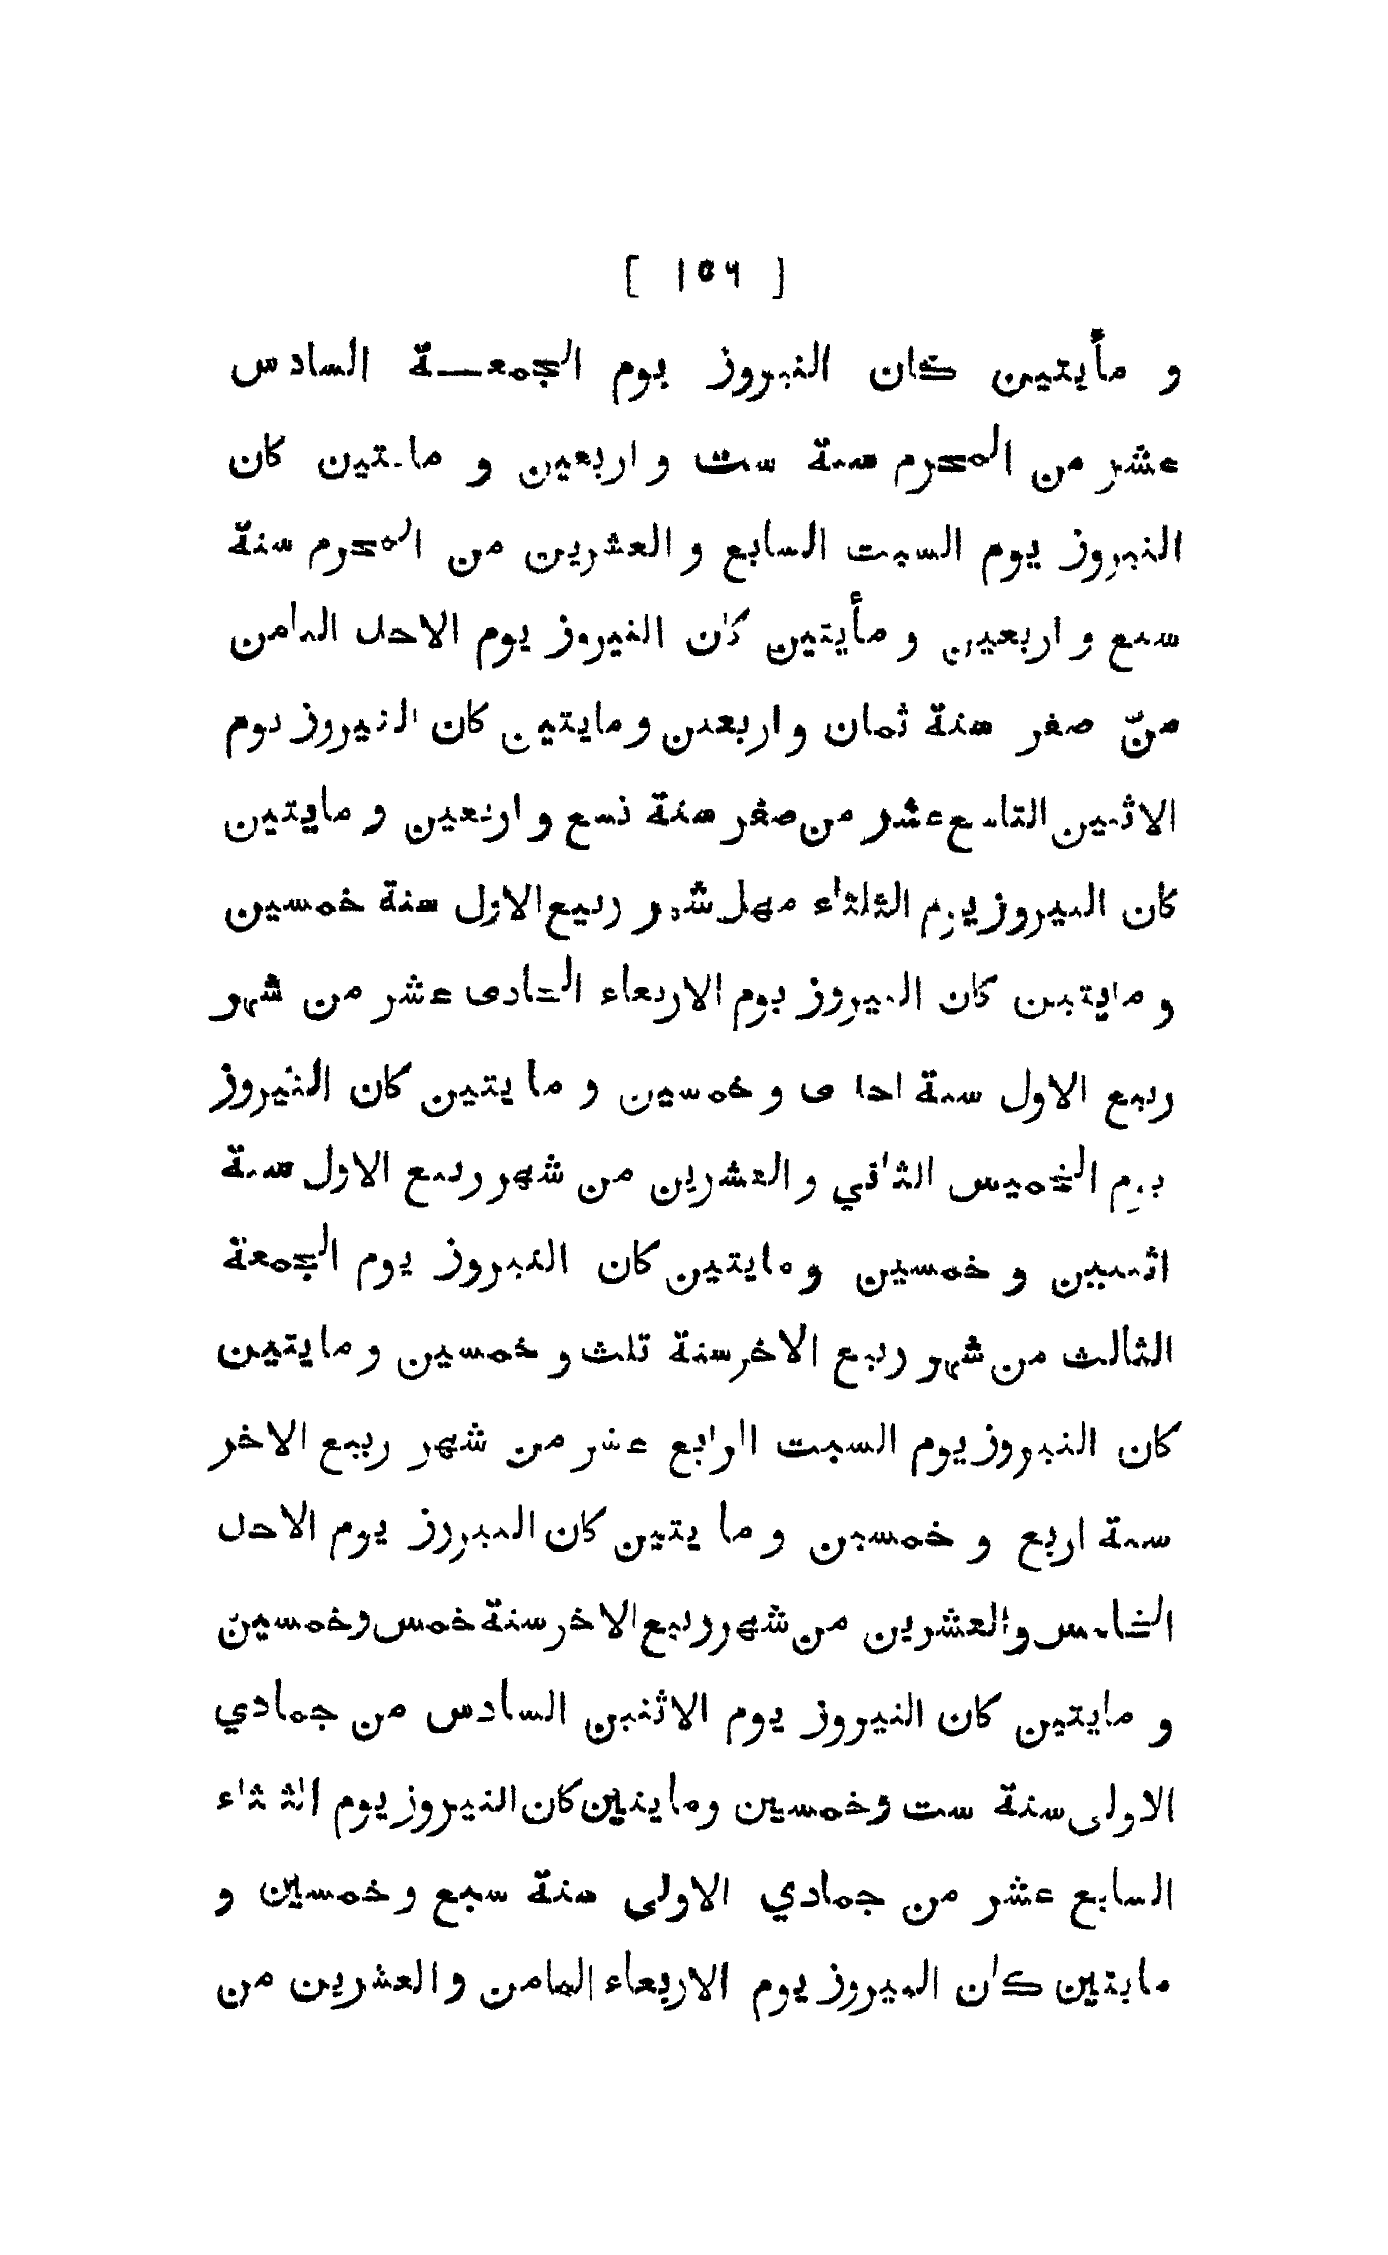 [ ١٥٦ ]
و مأيتين كان النيروز يوم الجمعـــة السادس
عشر من المحرم سنة ست و اربعين و مايتين كان
النيروز يوم السبت السابع و العشرين من المحرم سنة
سبع و اربعين و مأيتين كان النيروز يوم الاحد الثامن
منّ صفر سنة ثمان و اربعين و مايتين كان النيروز يوم
الاثنين التاسع عشر من صفر سنة تسع و اربعين و مايتين
كان النيروز يوم الثلثاء مهل شهر ربيع الاول سنة خمسين
و مايتين كان النيروز يوم الاربعاء الحادى عشر من شهر
ربيع الاول سنة احدى و خمسين و مايتين كان النيروز
يوم الخميس الثاني و العشرين من شهر ربيع الاول سنة
اثنين و خمسين و مايتين كان النيروز يوم الجمعة
الثالث من شهر ربيع الاخر سنة ثلث و خمسين و مايتين
كان النيروز يوم السبت الرابع عشر من شهر ربيع الاخر
سنة اربع و خمسين و مايتين كان النيروز يوم الاحد
الخامس والعشرين من شهر ربيع الاخر سنة خمس وخمسين
و مايتين كان النيروز يوم الاثنين السادس من جمادي
الاولى سنة ست وخمسين ومايتين كان النيروز يوم الثلثاء
السابع عشر من جمادي الاولى سنة سبع و خمسين و
مايتين كان النيروز يوم الاربعاء الثامن و العشرين من